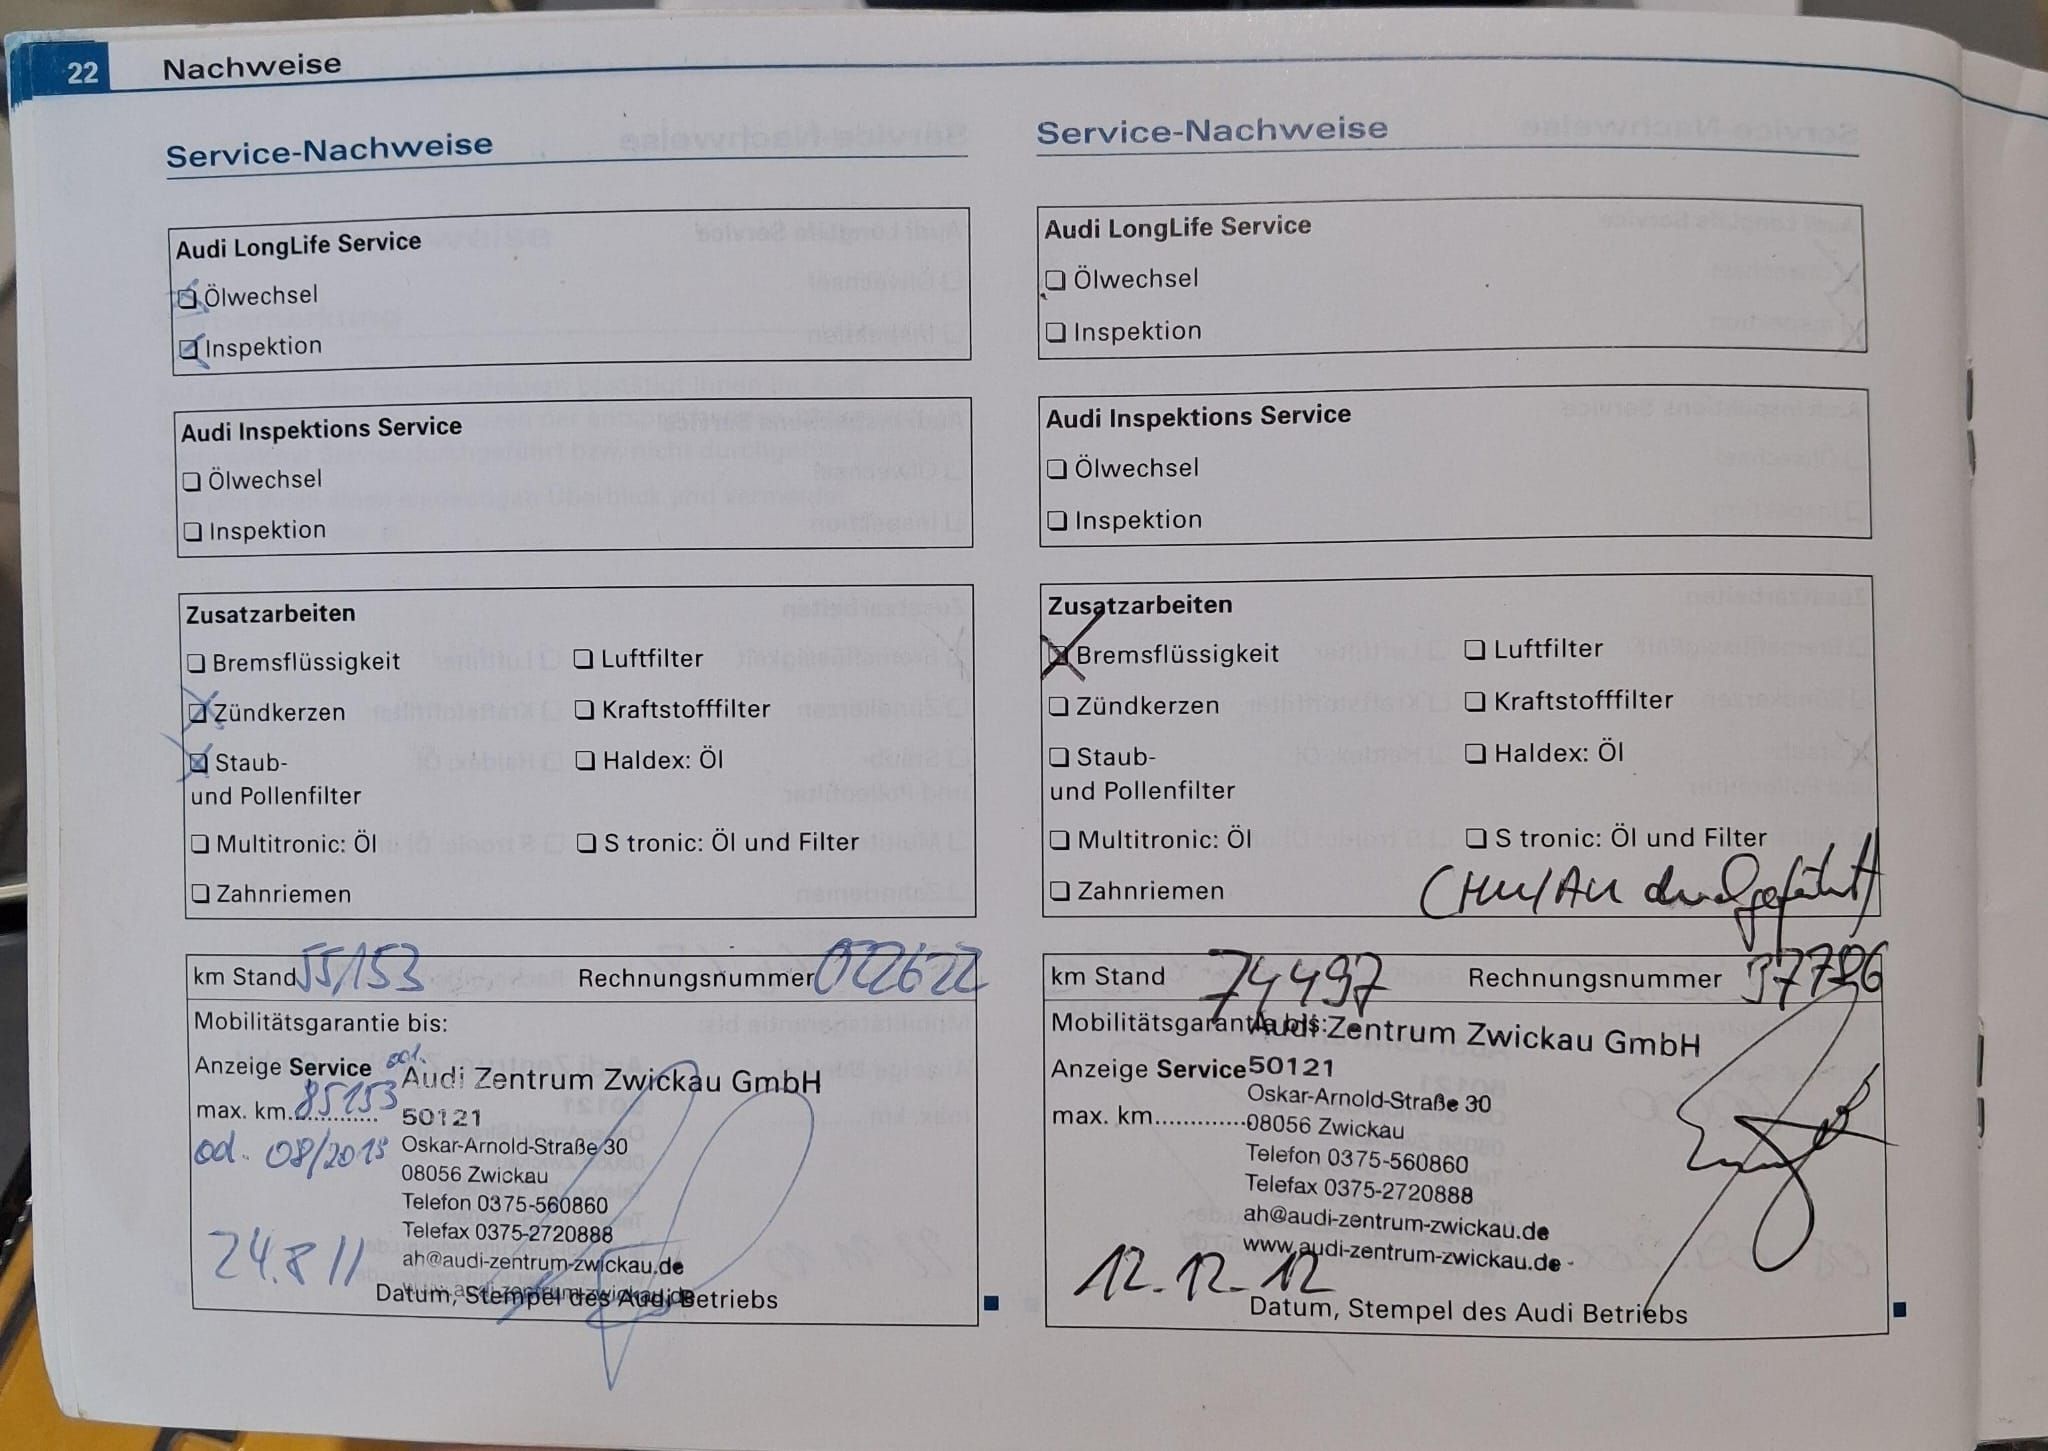 22 Nachweise
Service-Nachweise
Audi LongLife Service
Ölwechsel
Inspektion
Audi Inspektions Service
Ölwechsel
Inspektion
Zusatzarbeiten
Bremsflüssigkeit
Luftfilter
Zündkerzen
Kraftstofffilter
Staub-
und Pollenfilter
Haldex: Öl
Multitronic: Öl
S tronic: Öl und Filter
Zahnriemen
km Stand 55153 Rechnungsnummer 022622
Mobilitätsgarantie bis:
Anzeige Service od.
max. km 85153
od. 08/2013
Audi Zentrum Zwickau GmbH
50121
Oskar-Arnold-Straße 30
08056 Zwickau
Telefon 0375-560860
Telefax 0375-2720888
ah@audi-zentrum-zwickau.de
www.audi-zentrum-zwickau.de
24.8 11
Datum, Stempel des Audi Betriebs
Service-Nachweise
Audi LongLife Service
Ölwechsel
Inspektion
Audi Inspektions Service
Ölwechsel
Inspektion
Zusatzarbeiten
Bremsflüssigkeit
Luftfilter
Zündkerzen
Kraftstofffilter
Staub-
und Pollenfilter
Haldex: Öl
Multitronic: Öl
S tronic: Öl und Filter
Zahnriemen
(HU/AU durchgeführt)
km Stand 74497 Rechnungsnummer 37796
Mobilitätsgarantie bis:
Anzeige Service
max. km
Audi Zentrum Zwickau GmbH
50121
Oskar-Arnold-Straße 30
08056 Zwickau
Telefon 0375-560860
Telefax 0375-2720888
ah@audi-zentrum-zwickau.de
www.audi-zentrum-zwickau.de
12.12-12
Datum, Stempel des Audi Betriebs